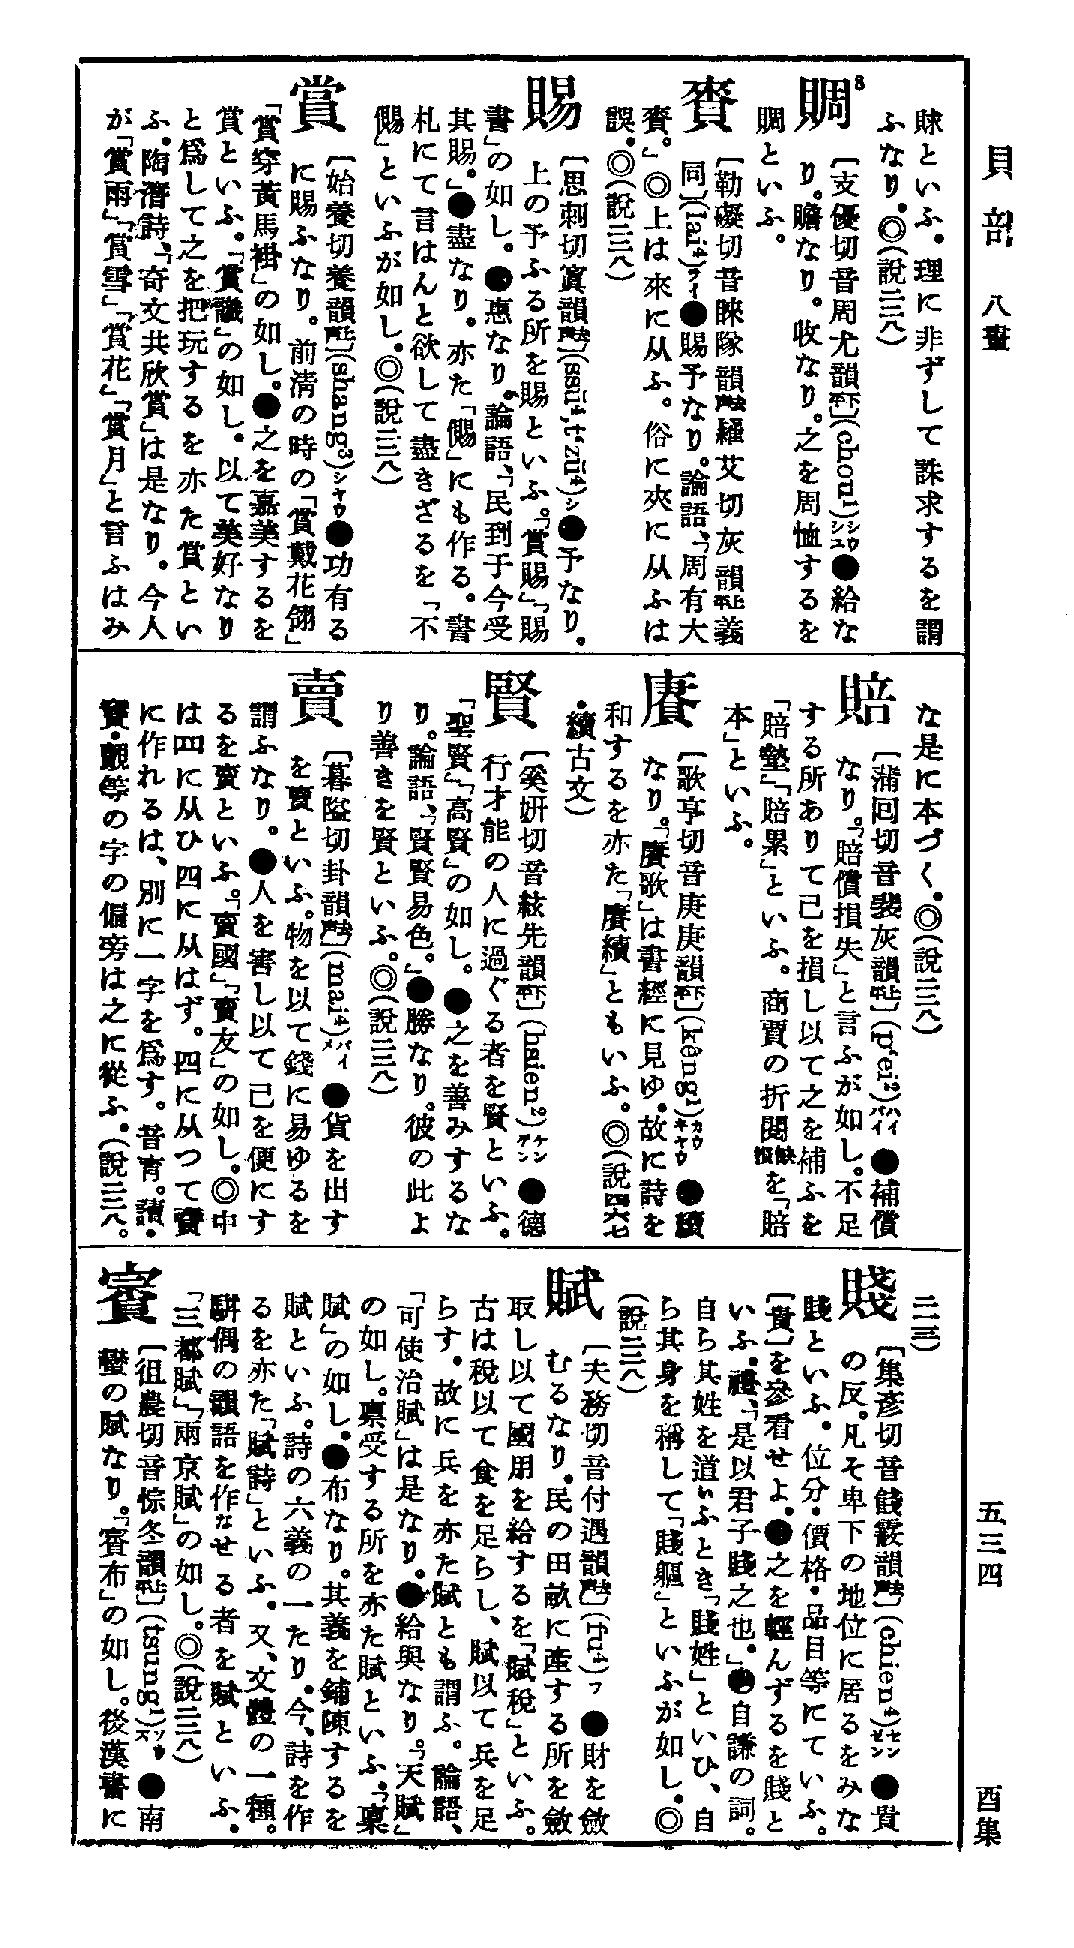 貝部 八畫
五三四
酉集
賕といふ。理に非ずして誅求するを謂
ふなり。◎(說二三八)
賙
〔支優切音周尤韻下平〕(chou¹)シウ シユ●給な
り。贍なり。收なり。之を周恤するを
賙といふ。
賚
〔勒礙切音睞隊韻去聲羅艾切灰韻上平義
同〕(lai⁴)ライ●賜予なり。論語、「周有大
賚。」◎上は來に从ふ。俗に夾に从ふは
誤。◎(說二三八)
賜
〔思刺切寘韻去聲〕(ssŭ⁴, tzŭ⁴)シ●予なり。
上の予ふる所を賜といふ。「賞賜」「賜
書」の如し。●惠なり。論語、「民到于今受
其賜。」●盡なり。亦た「儩」にも作る。書
札にて言はんと欲して盡きざるを「不
儩」といふが如し。◎(說二三八)
賞
〔始養切養韻上聲〕(shang³)シヤウ●功有る
に賜ふなり。前淸の時の「賞戴花翎」
「賞穿黃馬褂」の如し。●之を嘉美するを
賞といふ。「賞識」の如し。以て美好なり
と爲して之を把玩するを亦た賞とい
ふ。陶潛詩、「奇文共欣賞」は是なり。今人
が「賞雨」「賞雪」「賞花」「賞月」と言ふはみ
な是に本づく。◎(說二三八)
賠
〔蒲回切音裴灰韻上平〕(p'ei²)ハイ バイ●補償
なり。「賠償損失」と言ふが如し。不足
する所ありて己を損し以て之を補ふを
「賠墊」「賠累」といふ。商賈の折閱缺損を「賠
本」といふ。
賡
〔歌亨切音庚庚韻下平〕(kêng¹)カウ キヤウ●續
なり。「賡歌」は書經に見ゆ。故に詩を
和するを亦た「賡續」ともいふ。◎(說四六七
・續古文)
賢
〔奚姸切音絃先韻下平〕(hsien²)ケン ゲン●德
行才能の人に過ぐる者を賢といふ。
「聖賢」「高賢」の如し。●之を善みするな
り。論語、「賢賢易色。」●勝なり。彼の此よ
り善きを賢といふ。◎(說二三八)
賣
〔暮隘切卦韻去聲〕(mai⁴)バイ メ●貨を出す
を賣といふ。物を以て錢に易ゆるを
謂ふなり。●人を害し以て己を便にす
るを賣といふ。「賣國」「賣友」の如し。◎中
は四に从ひ四に从はず。四に从つて賣
に作れるは、別に一字を爲す。音育。讀・
竇・覿等の字の偏旁は之に從ふ。(說二三八。
二二三)
賤
〔集彥切音餞霰韻去聲〕(chien⁴)セン ゼン●貴
の反。凡そ卑下の地位に居るをみな
賤といふ。位分・價格・品目等にていふ。
〔貴〕を參看せよ。●之を輕んずるを賤と
いふ。禮、「是以君子賤之也。」●自謙の詞。
自ら其姓を道いふとき「賤姓」といひ、自
ら其身を稱して「賤軀」といふが如し。◎
(說二三八)
賦
〔夫務切音付遇韻去聲〕(fu⁴)フ●財を斂
むるなり。民の田畝に產する所を斂
取し以て國用を給するを「賦稅」といふ。
古は稅以て食を足らし、賦以て兵を足
らす。故に兵を亦た賦とも謂ふ。論語、
「可使治賦」は是なり。●給與なり。「天賦」
の如し。稟受する所を亦た賦といふ。「稟
賦」の如し。●布なり。其義を鋪陳するを
賦といふ。詩の六義の一たり。今、詩を作
るを亦た「賦詩」といふ。又、文體の一種。
駢偶の韻語を作なせる者を賦といふ。
「三都賦」「兩京賦」の如し。◎(說二三八)
賨
〔徂農切音悰冬韻上平〕(tsung¹)ソウ ス●南
蠻の賦なり。「賨布」の如し。後漢書に